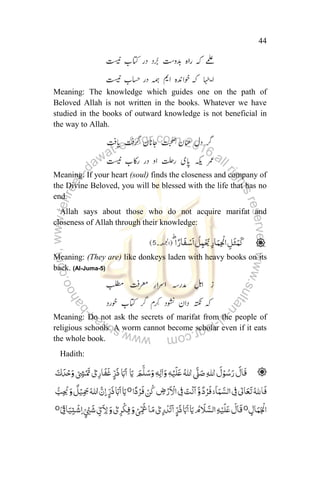 44
علمے کہ راہ بدوست بُرد در کتاب نیست
انہا کہ خواندہ ایم ہمہ در حساب نیست
Meaning: The knowledge which guides one on the path of
Beloved Allah is not written in the books. Whatever we have
studied in the books of outward knowledge is not beneficial in
the way to Allah.
عمر یکہ پائی رحلت او در رکاب نیست
Meaning: If your heart (soul) finds the closeness and company of
the Divine Beloved, you will be blessed with the life that has no
end.
Allah says about those who do not acquire marifat and
closeness of Allah through their knowledge:
كَمَثَلِ الْحِمَارِ يَحْمِلُ اَسْفَارًا ط (الجمعہ-5)
Meaning: (They are) like donkeys laden with heavy books on its
back. (Al-Juma-5)
ز اہل مدرسہ اسرار معرفت مطلب
کہ نکتہ دان نشود کرم گر کتاب خورد
Meaning: Do not ask the secrets of marifat from the people of
religious schools. A worm cannot become scholar even if it eats
the whole book.
Hadith:
قَالَ رَسُوْلُ اللهِ صَلَّى اللهُ عَلَيْهِ وَاٰلِهٖ وَسَلَّمَ يَا اَبَا ذَرٍّ غِفَارِيْ تَمْشِيْ وَحْدَكَ
فَاللهُ تَعَالٰى فِي السَّمَاءِ فَرْدٌ وَّ اَنْتَ فِي الْاَرْضِ كُنْ فَرْدًا o يَا اَبَا ذَرٍّ اِنَّ اللهَ جَمِيْلٌ وَّ يُحِبُّ
الْجَمَالَ o